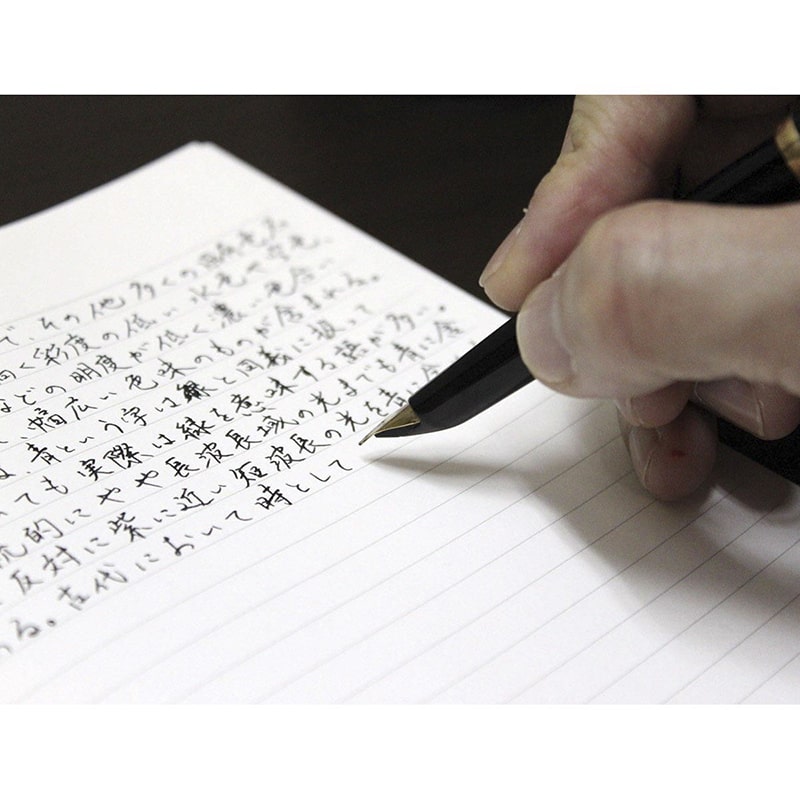 で その他多くの同系色名
く彩度の低い水色や空色、
などの明度が低く濃い色合い
、幅広い色味のものが含まれる。
青という字は緑と同義に扱って
いても実際は緑を意味する語が多い。
統的にやや長波長域の光までも青に含
反対に紫に近い短波長の光を青に含
る。古代において時として